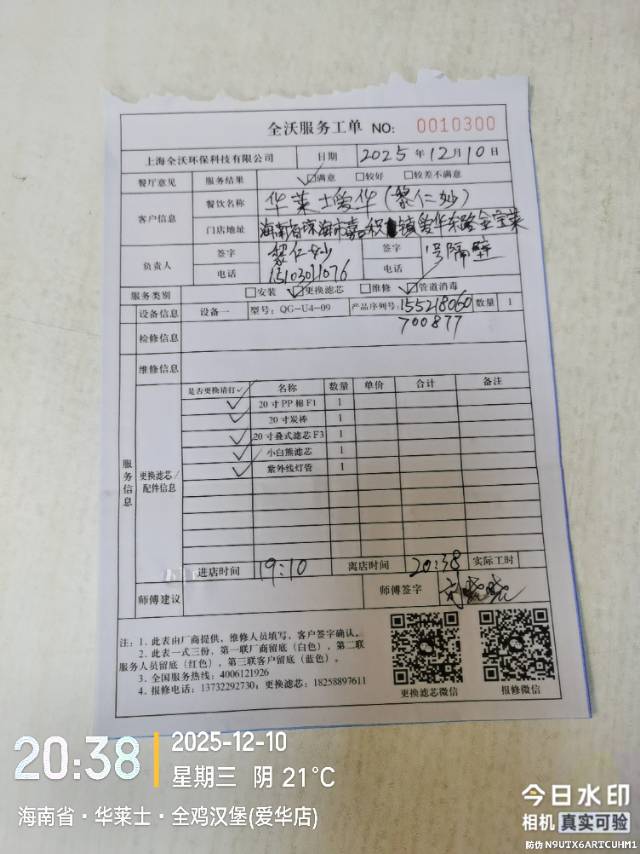 全沃服务工单 NO: 0010300
上海全沃环保科技有限公司 日期 2025年12月10日
餐厅意见 服务结果 ☑满意 □较好 □较差不满意
客户信息 餐饮名称 华莱士爱华(黎仁妙)
门店地址 海南省琼海市嘉积镇爱华东路金宝莱
负责人 签字 黎仁妙 签字 1号隔壁
电话 15103011076 电话
服务类别 □安装 ☑更换滤芯 □维修 ☑管道消毒
设备信息 设备一 型号: QG-U4-09 产品序列号: 155218060 数量 1
700877
检修信息
维修信息
服务信息
更换滤芯/配件信息
是否更换请打✓ 名称 数量 单价 合计 备注
✓ 20寸PP棉F1 1
✓ 20寸炭棒 1
✓ 20寸叠式滤芯F3 1
✓ 小白熊滤芯 1
✓ 紫外线灯管 1
进店时间 19:10 离店时间 20:38 实际工时
师傅建议 师傅签字
注: 1. 此表由厂商提供, 维修人员填写, 客户签字确认。
2. 此表一式三份, 第一联厂商留底(白色), 第二联
服务人员留底(红色), 第三联客户留底(蓝色)。
3. 全国服务热线: 4006121926
4. 报修电话: 13732292730; 更换滤芯: 18258897611
更换滤芯微信 报修微信
20:38 2025-12-10
星期三 阴 21℃
海南省·华莱士·全鸡汉堡(爱华店)
今日水印
相机 真实可验
防伪 N9UTX6ARTCUHM1